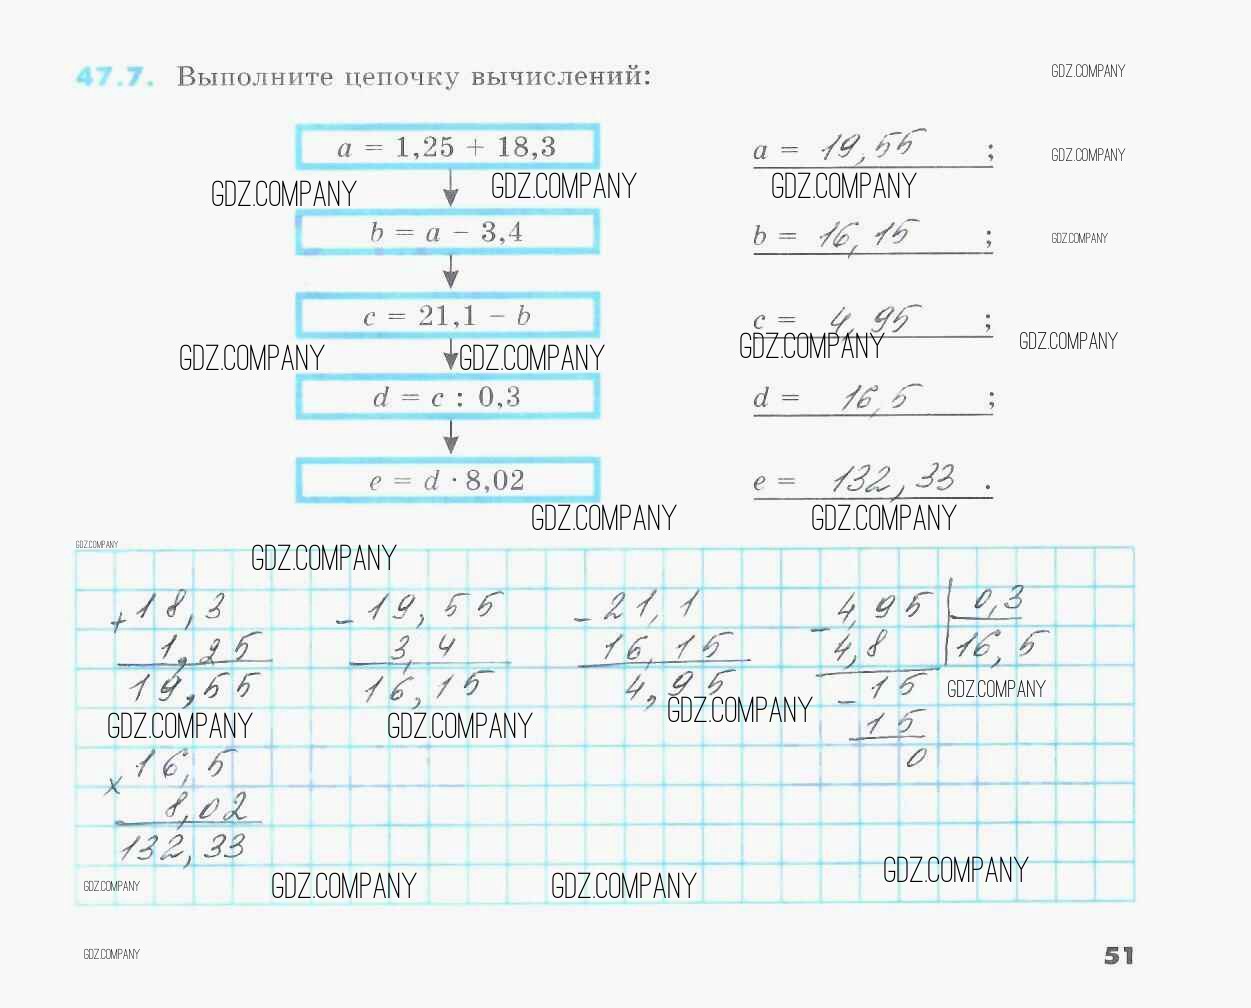 47.7. Выполните цепочку вычислений:
GDZ.COMPANY
a = 1,25 + 18,3
a = 19,55 ;
GDZ.COMPANY
GDZ.COMPANY GDZ.COMPANY GDZ.COMPANY
b = a − 3,4
b = 16,15 ;
GDZ.COMPANY
c = 21,1 − b
c = 4,95 ;
GDZ.COMPANY GDZ.COMPANY GDZ.COMPANY GDZ.COMPANY
d = c : 0,3
d = 16,5 ;
e = d · 8,02
e = 132,33 .
GDZ.COMPANY GDZ.COMPANY
GDZ.COMPANY
GDZ.COMPANY
+ 18,3 − 19,55 − 21,1 − 4,95 0,3
1,25 3,4 16,15 4,8 16,5
19,55 16,15 4,95 − 15 GDZ.COMPANY
GDZ.COMPANY GDZ.COMPANY GDZ.COMPANY 15
× 16,5 0
8,02
132,33
GDZ.COMPANY GDZ.COMPANY GDZ.COMPANY GDZ.COMPANY
GDZ.COMPANY
51